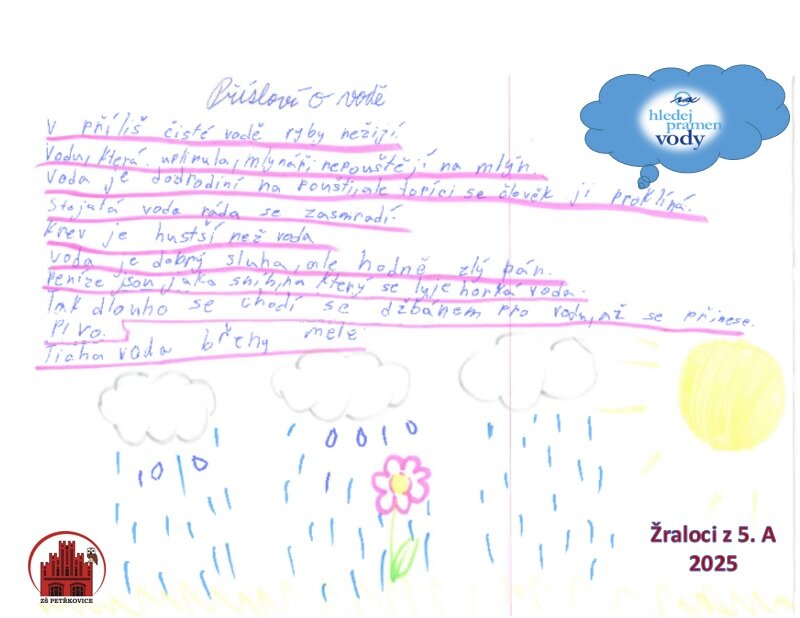 Přísloví o vodě
V příliš čisté vodě ryby nežijí.
Vodu, která uplinula, mlynáři nepouštějí na mlýn.
Voda je dobrodiní na poušti, ale topící se člověk ji proklíná.
Stojatá voda ráda se zasmradí.
Krev je hustší než voda
Voda je dobrý sluha, ale hodně zlý pán.
Peníze jsou jaka sníh, na který se lyje horká voda.
Tak dlouho se chodí se džbánem pro vodu, až se přinese.
Pivo.
Ticha voda břehy mele
hledej
pramen
vody
Žraloci z 5. A
2025
ZŠ PETŘKOVICE